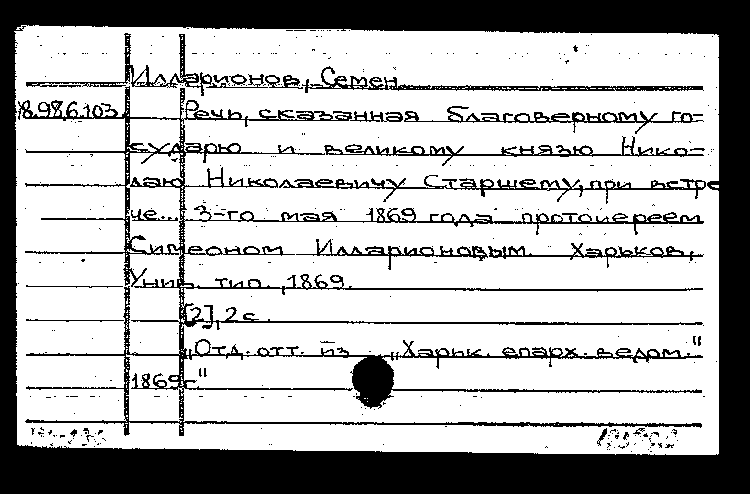 Илларионов, Семен
18.986.103. Речь, сказанная благоверному го-
сударю и великому князю Нико-
лаю Николаевичу Старшему, при встре
че... 3-го мая 1869 года протоиереем
Симеоном Илларионовым. Харьков,
Унив. тип., 1869.
[2], 2 с.
„Отд. отт. из „Харьк. епарх. ведом."
1869г"